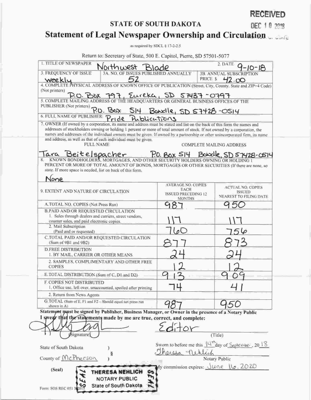 RECEIVED
DEC 18 2018
STATE OF SOUTH DAKOTA
Statement of Legal Newspaper Ownership and Circulation
as required by SDCL 17-2-2.5
Return to: Secretary of State, 500 E. Capitol, Pierre, SD 57501-5077
1. TITLE OF NEWSPAPER Northwest Blade
2. DATE 9-10-18
3. FREQUENCY OF ISSUE weekly
3A. NO. OF ISSUES PUBLISHED ANNUALLY 52
3B. ANNUAL SUBSCRIPTION PRICE $ 42.00
4. COMPLETE PHYSICAL ADDRESS OF KNOWN OFFICE OF PUBLICATION (Street, City, County, State and ZIP+4 Code)
(Not printers)
P.O. Box 797, Eureka, SD 57437-0797
5. COMPLETE MAILING ADDRESS OF THE HEADQUARTERS OR GENERAL BUSINESS OFFICES OF THE
PUBLISHER (Not printer)
P.O. Box 514 Bowdle, SD 57428-0514
6. FULL NAME OF PUBLISHER Pride Publications
7. OWNER (If owned by a corporation, its name and address must be stated and
FULL NAME COMPLETE MAILING ADDRESS
Tara Beitelspacher Po Box 514 Bowdle, SD 57428-0514
8. KNOWN BONDHOLDERS, MORTGAGEES, AND OTHER SECURITY HOLDERS OWNING OR HOLDING 1
PERCENT OR MORE OF TOTAL AMOUNT OF BONDS, MORTGAGES OR OTHER SECURITIES (If there are none, so
state. If more space is needed, list on back of this form.)
None
9. EXTENT AND NATURE OF CIRCULATION
AVERAGE NO. COPIES EACH ISSUED PRECEDING 12 MONTHS
ACTUAL NO. COPIES ISSUED NEAREST TO FILING DATE
A. TOTAL NO. COPIES (Net Press Run) 987 950
B. PAID AND/OR REQUESTED CIRCULATION
1. Sales through dealers and carriers, street vendors,
counter sales, and paid electronic copies. 117 117
2. Mail Subscription
(Paid and/or requested) 760 756
C. TOTAL PAID AND/OR REQUESTED CIRCULATION
(Sum of 9B1 and 9B2) 877 873
D. FREE DISTRIBUTION
1. BY MAIL, CARRIER OR OTHER MEANS 24 24
2. SAMPLES, COMPLIMENTARY AND OTHER FREE
COPIES 12 12
E. TOTAL DISTRIBUTION (Sum of C, D1 and D2) 913 909
F. COPIES NOT DISTRIBUTED
1. Office use, left over, unaccounted, spoiled after printing 74 41
2. Return from News Agents
G. TOTAL (Sum of E, F1 and F2 - Should equal net press run
shown in A) 987 950
Statement must be signed by Publisher, Business Manager, or Owner in the presence of a Notary Public
I swear that the statements made by me are true, correct, and complete:
Editor
(Signature) (Title)
State of South Dakota )
County of McPherson )
Sworn to before me this day of September, 2018
Theresa Nehlich
Notary Public
My commission expires: June 16, 2020
THERESA NEHLICH
NOTARY PUBLIC
State of South Dakota